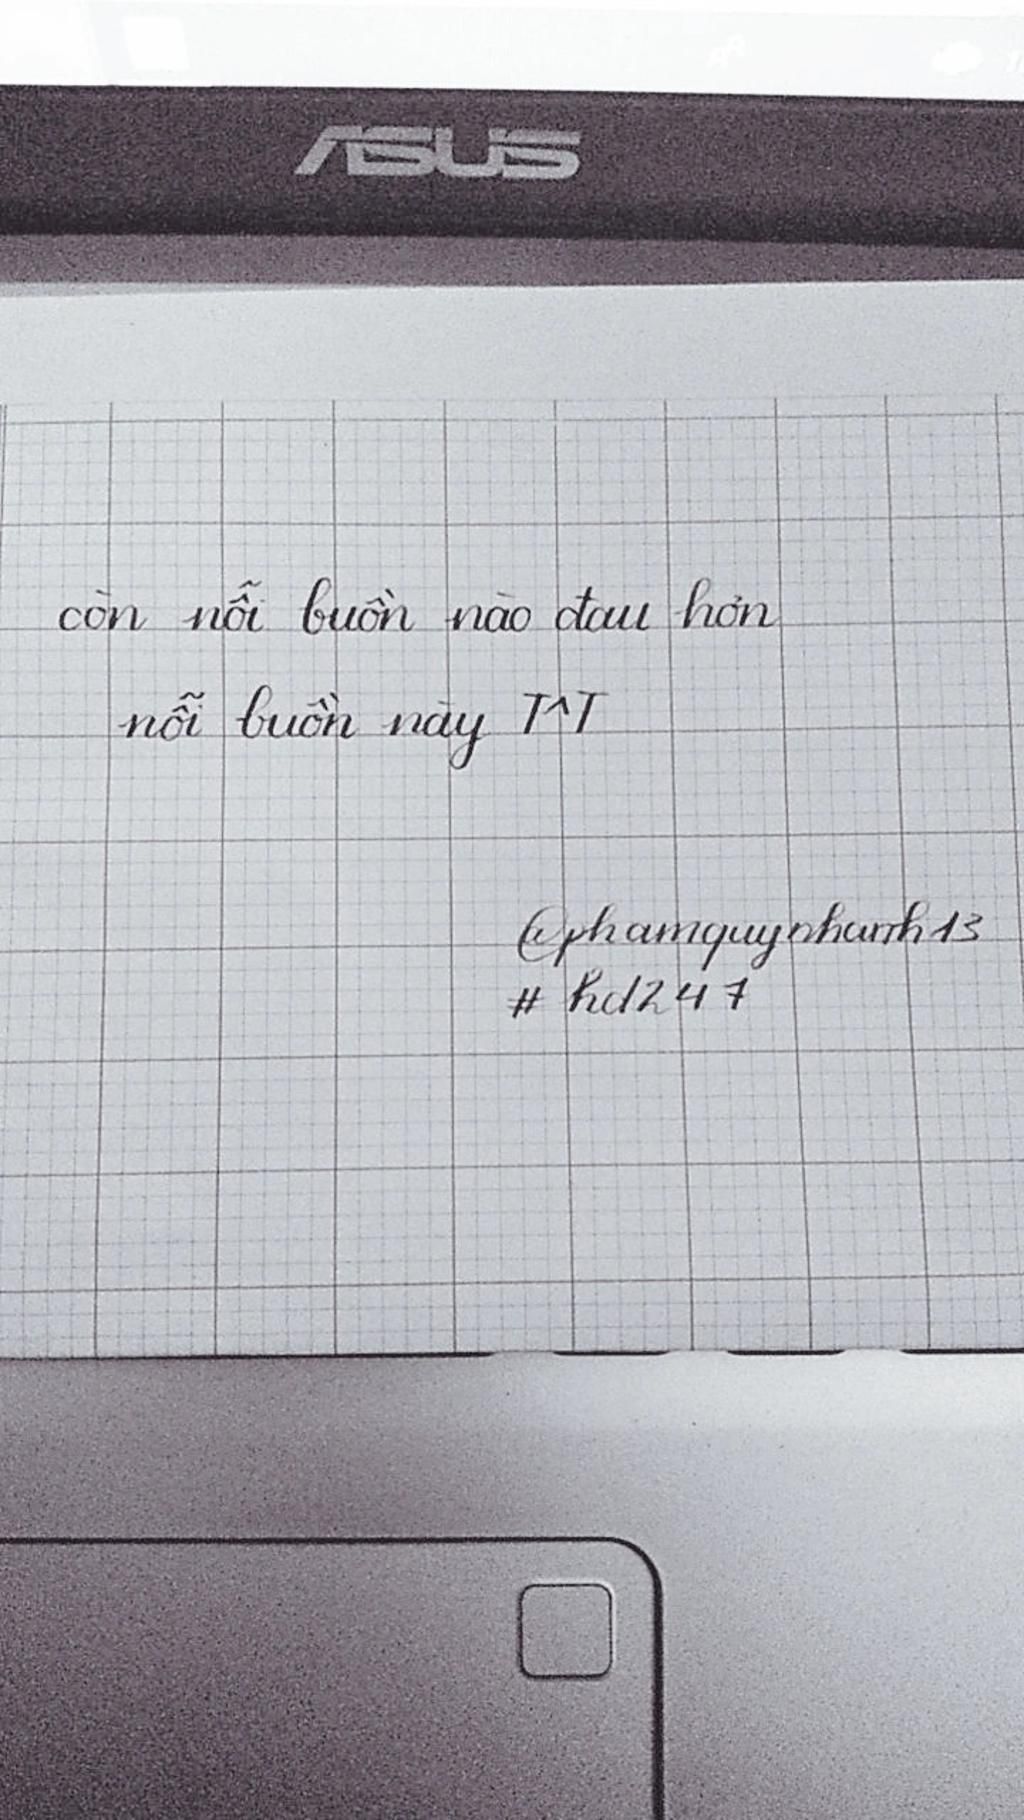 ASUS
còn nỗi buồn nào đau hơn
nỗi buồn này T^T
@phamquynhanh13
# hd247